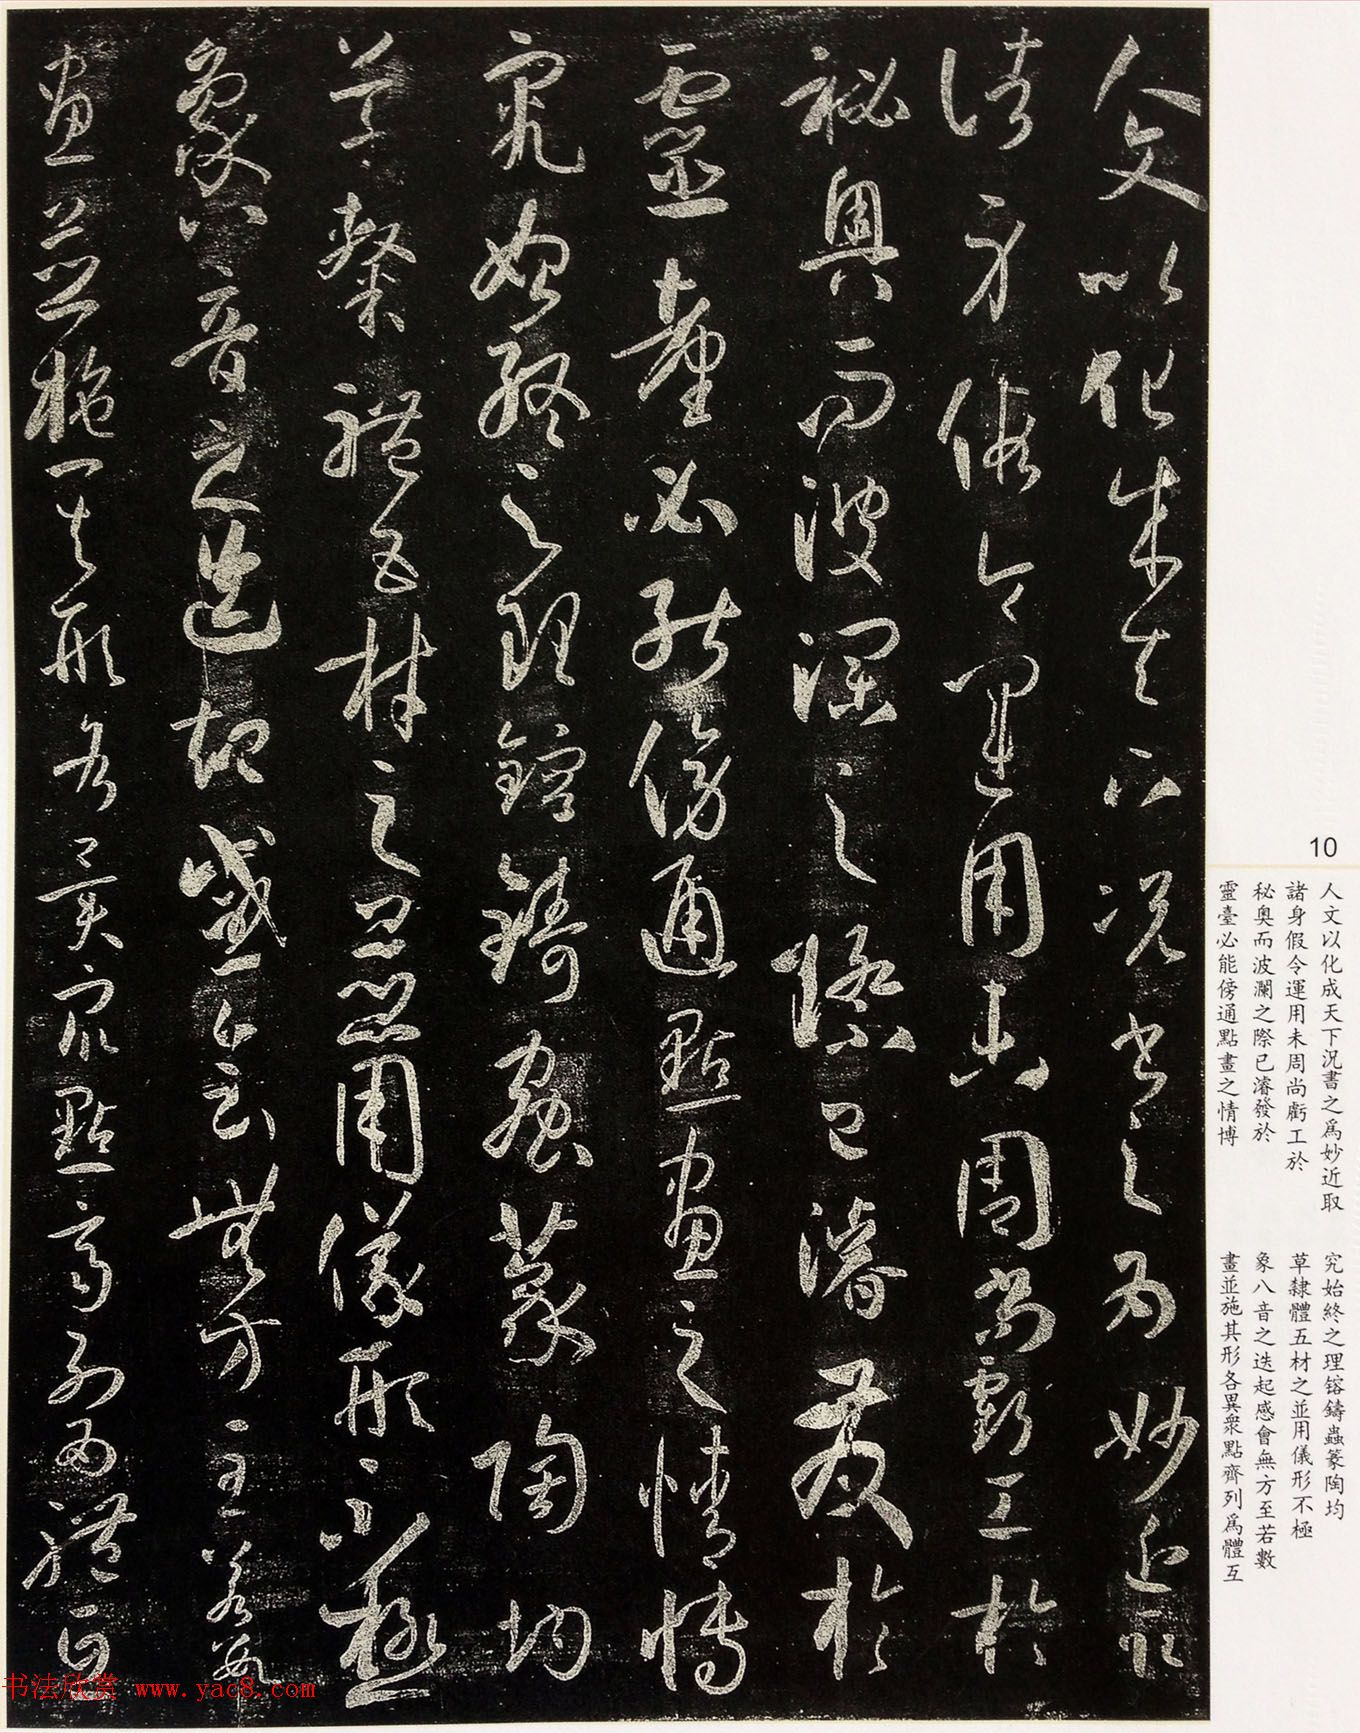 人文以化成天下況書之為妙近取
諸身假令運用未周尚虧工於
秘奧而波瀾之際已濬發於
靈臺必能傍通點畫之情博
究始終之理鎔鑄蟲篆陶均
草隸體五材之並用儀形不極
象八音之迭起感會無方至若數
畫並施其形各異眾點齊列為體互
10
人文以化成天下況書之為妙近取
諸身假令運用未周尚虧工於
秘奧而波瀾之際已濬發於
靈臺必能傍通點畫之情博
究始終之理鎔鑄蟲篆陶均
草隸體五材之並用儀形不極
象八音之迭起感會無方至若數
畫並施其形各異衆點齊列爲體互
书法欣赏 www.yac8.com